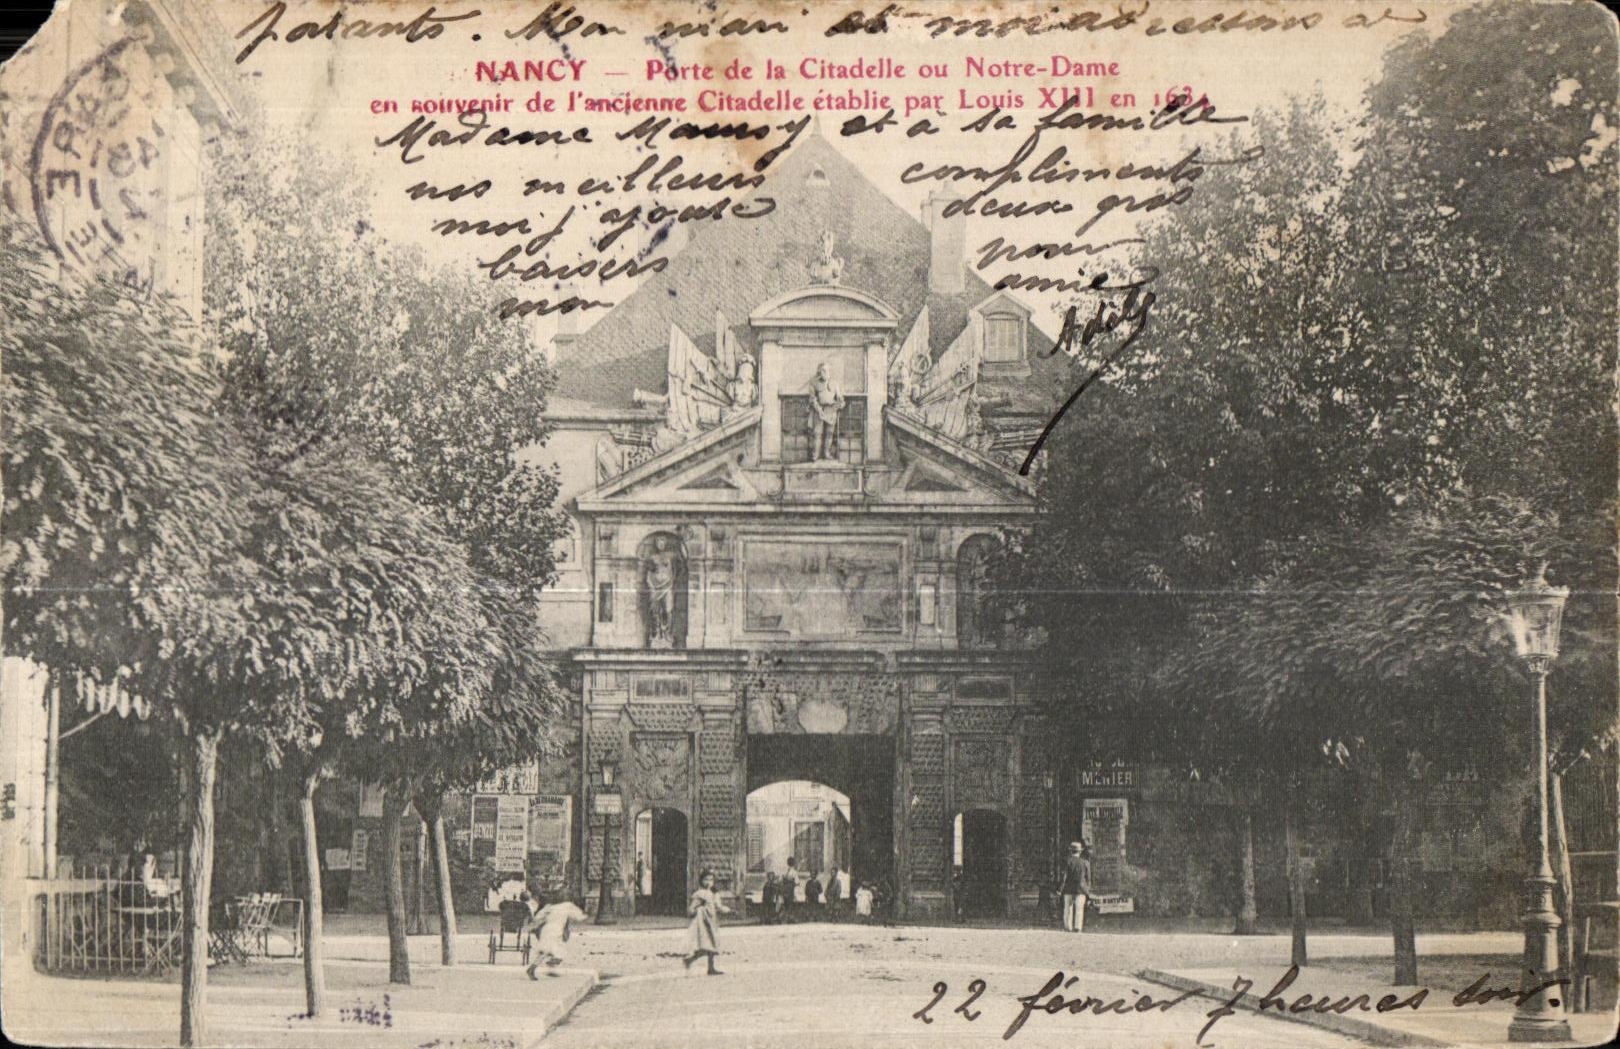 parants. Mon mari et moi adressons a
NANCY — Porte de la Citadelle ou Notre-Dame
en souvenir de l'ancienne Citadelle établie par Louis XIII en 1634
Madame Mausy et à sa famille
nos meilleurs compliments
moi j'ajoute deux gros
baisers pour
mon amie
Adèle
MENIER
22 février 7 heures soir.